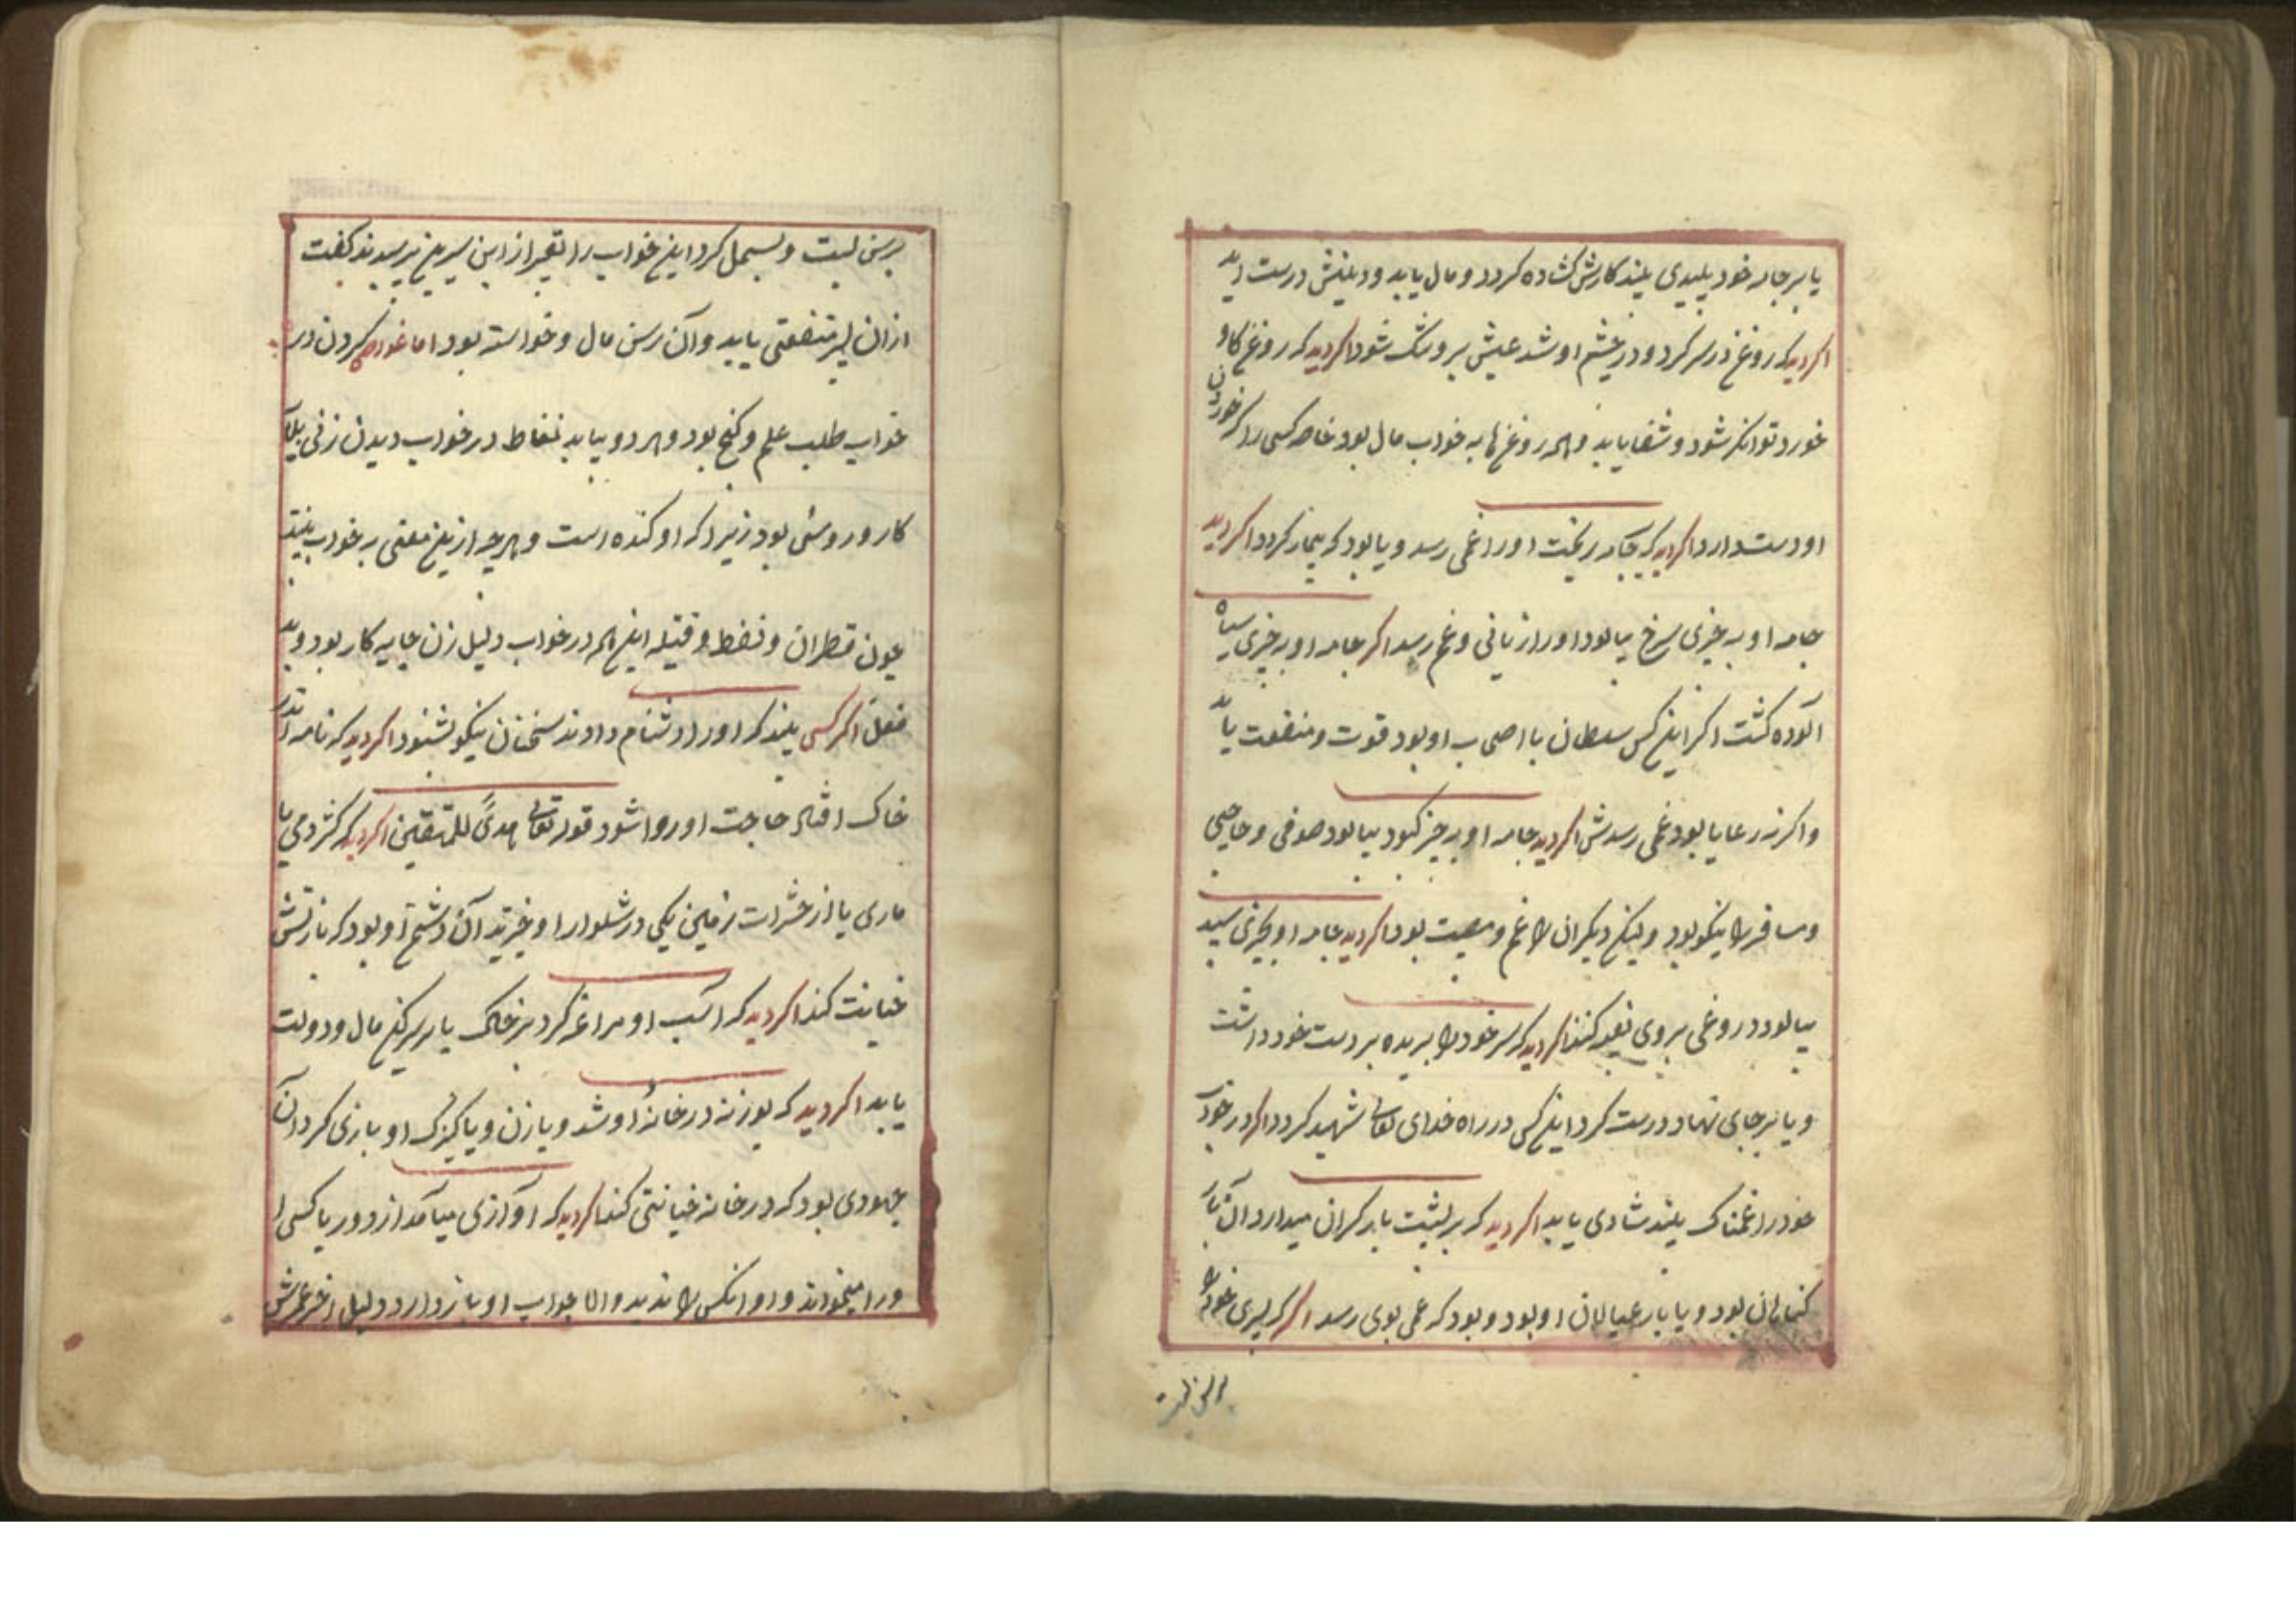 یا بر جامه خود پلیدی بیند کارش کشاده کردد و مال یابد و دینش درست آید
اکر دید که روغن در سر کرد و در چشم او شد عیش بر وی شود اکر دید که روغن کاو
خورد توانکر شود و شفا یابد و همه روغن ها به خواب مال بود خاصه کسی را که خوردن
او دست دارد اکر دید که جامه ریخت او را غمی رسد و یا بود که بیمار کردد اکر دید
جامه او به چیزی سرخ بیالود او را زیانی و غم رسد اکر جامه او به چیزی سیاه
آلوده کشت اکر این کس سلطان یا اصحاب او بود قوت و منفعت یابد
و اکر نه رعایا بود غمی رسدش اکر دید جامه او به چیز کبود بیالود صوفی و حاجی
و مسافر را نیکو بود ولیکن دیکران را غم و مصیبت بود اکر دید جامه او بچیزی سپید
بیالود دروغی بر وی کنند اکر دید که سر خود را بریده بر دست خود داشت
و یا بر جای نهاد و درست کرد این کس در راه خدای تعالی شهید کردد اکر در خواب
خود را غمناک بیند شادی یابد اکر دید که بر پشت بار کران میدارد آن بار
کناهان بود و یا بار عیالان او بود و بود که غمی بوی رسد اکر که پسری خود را
برسن بست
برسن بست و بسمل کرد این خواب را تعبیر از ابن سیرین پرسیدند کفت
از ان پسر منفعتی یابد و آن رسن مال و خواسته بود اما غواصی کردن در
خواب طلب علم و کنج بود و هر دو بیابد نفاط در خواب دیدن زنی
کار و روسپی بود زیرا که او کنده است و هر چه ازین معنی به خواب بیند
چون قطران و نفط و فتیله این همه در خواب دلیل زن کار بود و بد
فعل اکر کسی بیند که او را دشنام دادند سخنان نیکو بشنود اکر دید که نامه اندر
خاک حاجت او روا شود قوله تعالی هدًی للمتقین اکر دید که کژدمی یا
ماری یا از حشرات زمین یکی در شلوار او خزید آن دشمن او بود که با زنش
خیانت کند اکر دید که اسب او مراغه کرد بر خاک یا بر سرکین مال و دولت
یابد اکر دید که بوزنه در خانهٔ او شد و با زن و یا کنیزک او بازی کرد آن
جهودی بود که در خانه خیانتی کند اکر دید که آوازی میآمد از دور یا کسی
ورا میخواند و او آنکس را ندید و الا جواب او باز داد دلیل آخر عمرش